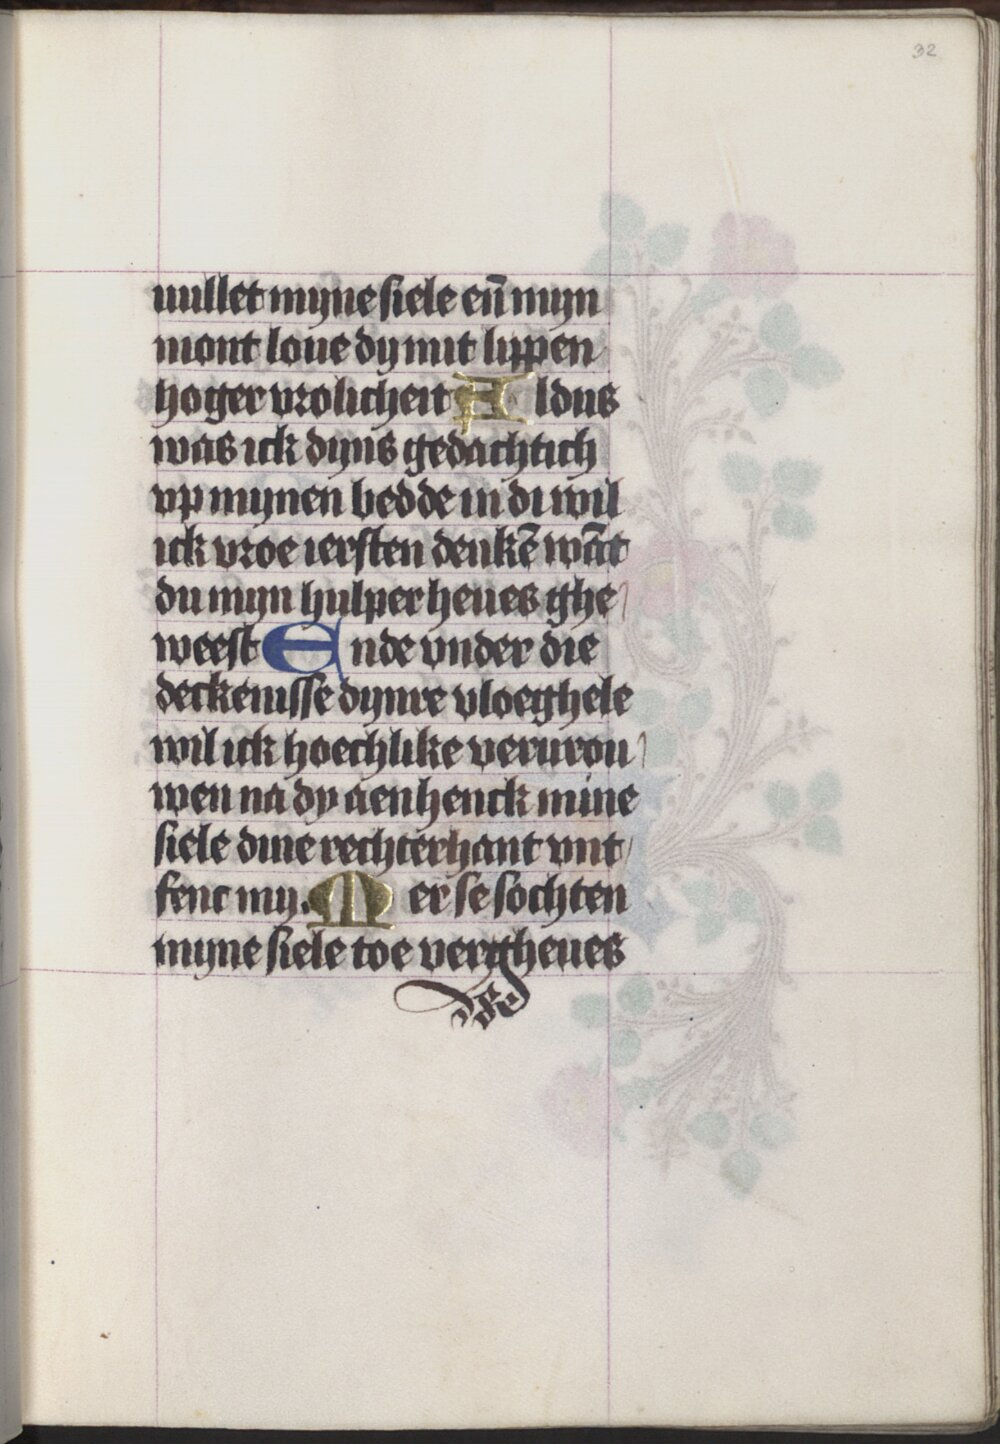 32
uullet myne siele eñ myn
mont loue dy mit lyppen
hoger vrolicheit Aldus
was ick dyns gedachtich
vp mynen bedde in di wil
ick vroe iersten denkē wāt
du myn hulper heues ghe
weest Ende vnder die
deckenisse dynre vloeghele
wil ick hoechlike verurou
wen na dy aenhenck mine
siele dine rechterhant vnt
fenc my. Mer se sochten
myne siele toe vergheues